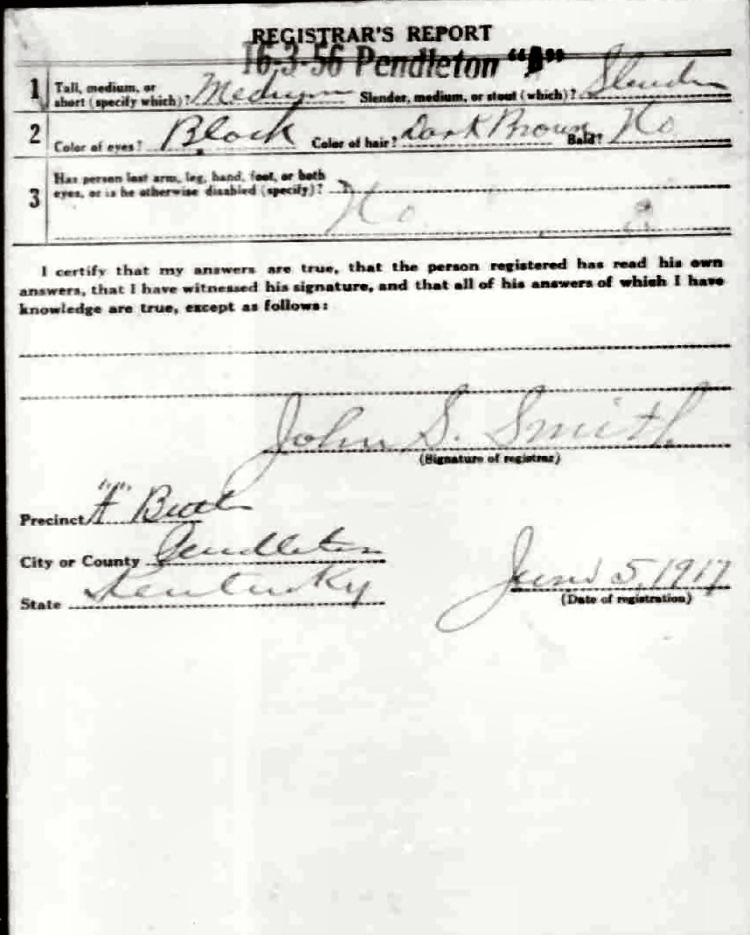 REGISTRAR'S REPORT
16-3-56 Pendleton "A"
1 Tall, medium, or short (specify which)? Medium Slender, medium, or stout (which)? Slender
2 Color of eyes? Black Color of hair? Dark Brown Bald? No
3 Has person lost arm, leg, hand, foot, or both
eyes, or is he otherwise disabled (specify)?
No
I certify that my answers are true, that the person registered has read his own
answers, that I have witnessed his signature, and that all of his answers of which I have
knowledge are true, except as follows:
John S. Smith
(Signature of registrar)
Precinct "A"
City or County Pendleton
State Kentucky
June 5, 1917
(Date of registration)